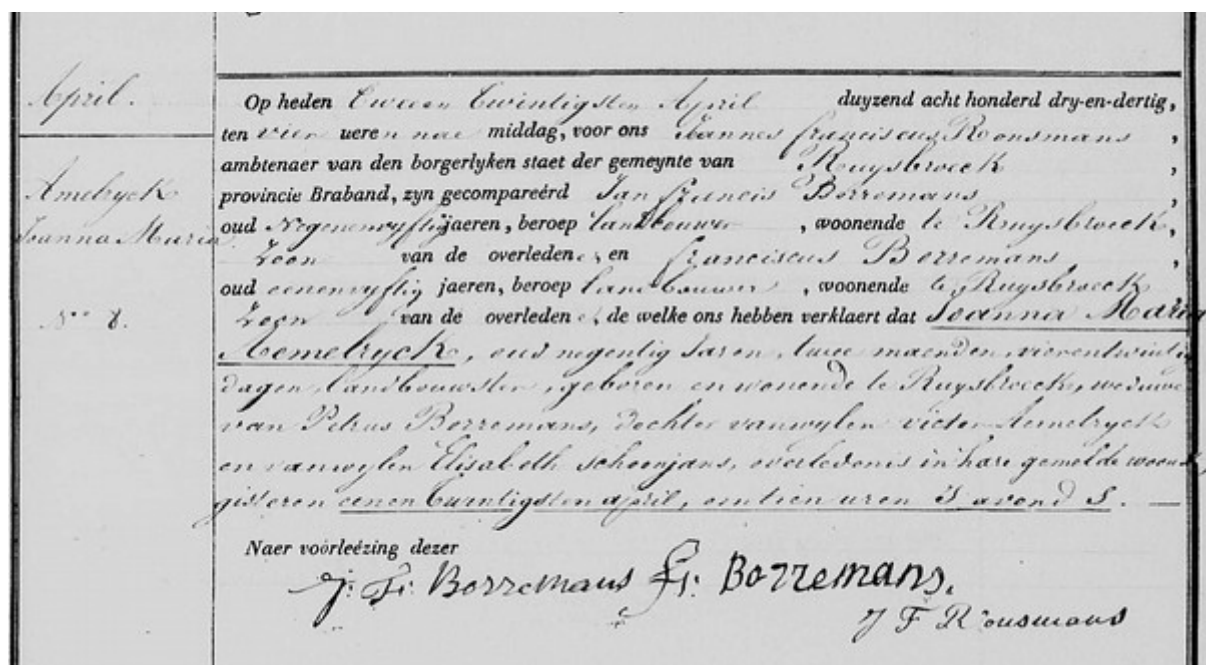 April.
Op heden tweeen twintigsten April duyzend acht honderd dry-en-dertig,
ten vier ueren nae middag, voor ons Joannes franciscus Roonsmans,
ambtenaer van den borgerlyken staet der gemeynte van Ruysbroeck,
provincie Braband, zyn gecompareérd Jan francis Borremans,
oud Negenenvyftig jaeren, beroep landbouwer, woonende te Ruysbroeck,
Zoon van de overledene, en franciscus Borremans,
oud eenenvyftig jaeren, beroep landbouwer, woonende te Ruysbroeck
Zoon van de overledene, de welke ons hebben verklaert dat Joanna Maria
Aemelryck, oud negentig Jaren, twee maenden, vierentwintig
dagen, landbouwster, geboren en wonende te Ruysbroeck, weduwe
van Petrus Borremans, dochter vanwylen victor Aemelryck
en vanwylen Elisabeth Schoonjans, overleden is in hare gemelde
gisteren eenen twintigsten april, om tien uren 's avond s.
Amelryck
Joanna Maria
N° 8.
Naer voórleézing dezer
J: Fr: Borremans Fr: Borremans.
J F Roonsmans